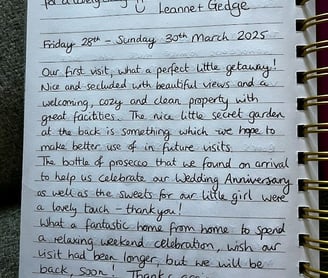 for a lovely
Leanne + Gedge
Friday 28th – Sunday 30th March 2025
Our first visit, what a perfect little getaway!
Nice and secluded with beautiful views and a
welcoming, cozy and clean property with
great facilities. The nice little secret garden
at the back is something which we hope to
make better use of in future visits.
The bottle of prosecco that we found on arrival
to help us celebrate our Wedding Anniversary
as well as the sweets for our little girl were
a lovely touch – thankyou!
What a fantastic home from home to spend
a relaxing weekend celebration, wish our
visit had been longer, but we will be
back, soon! Thanks